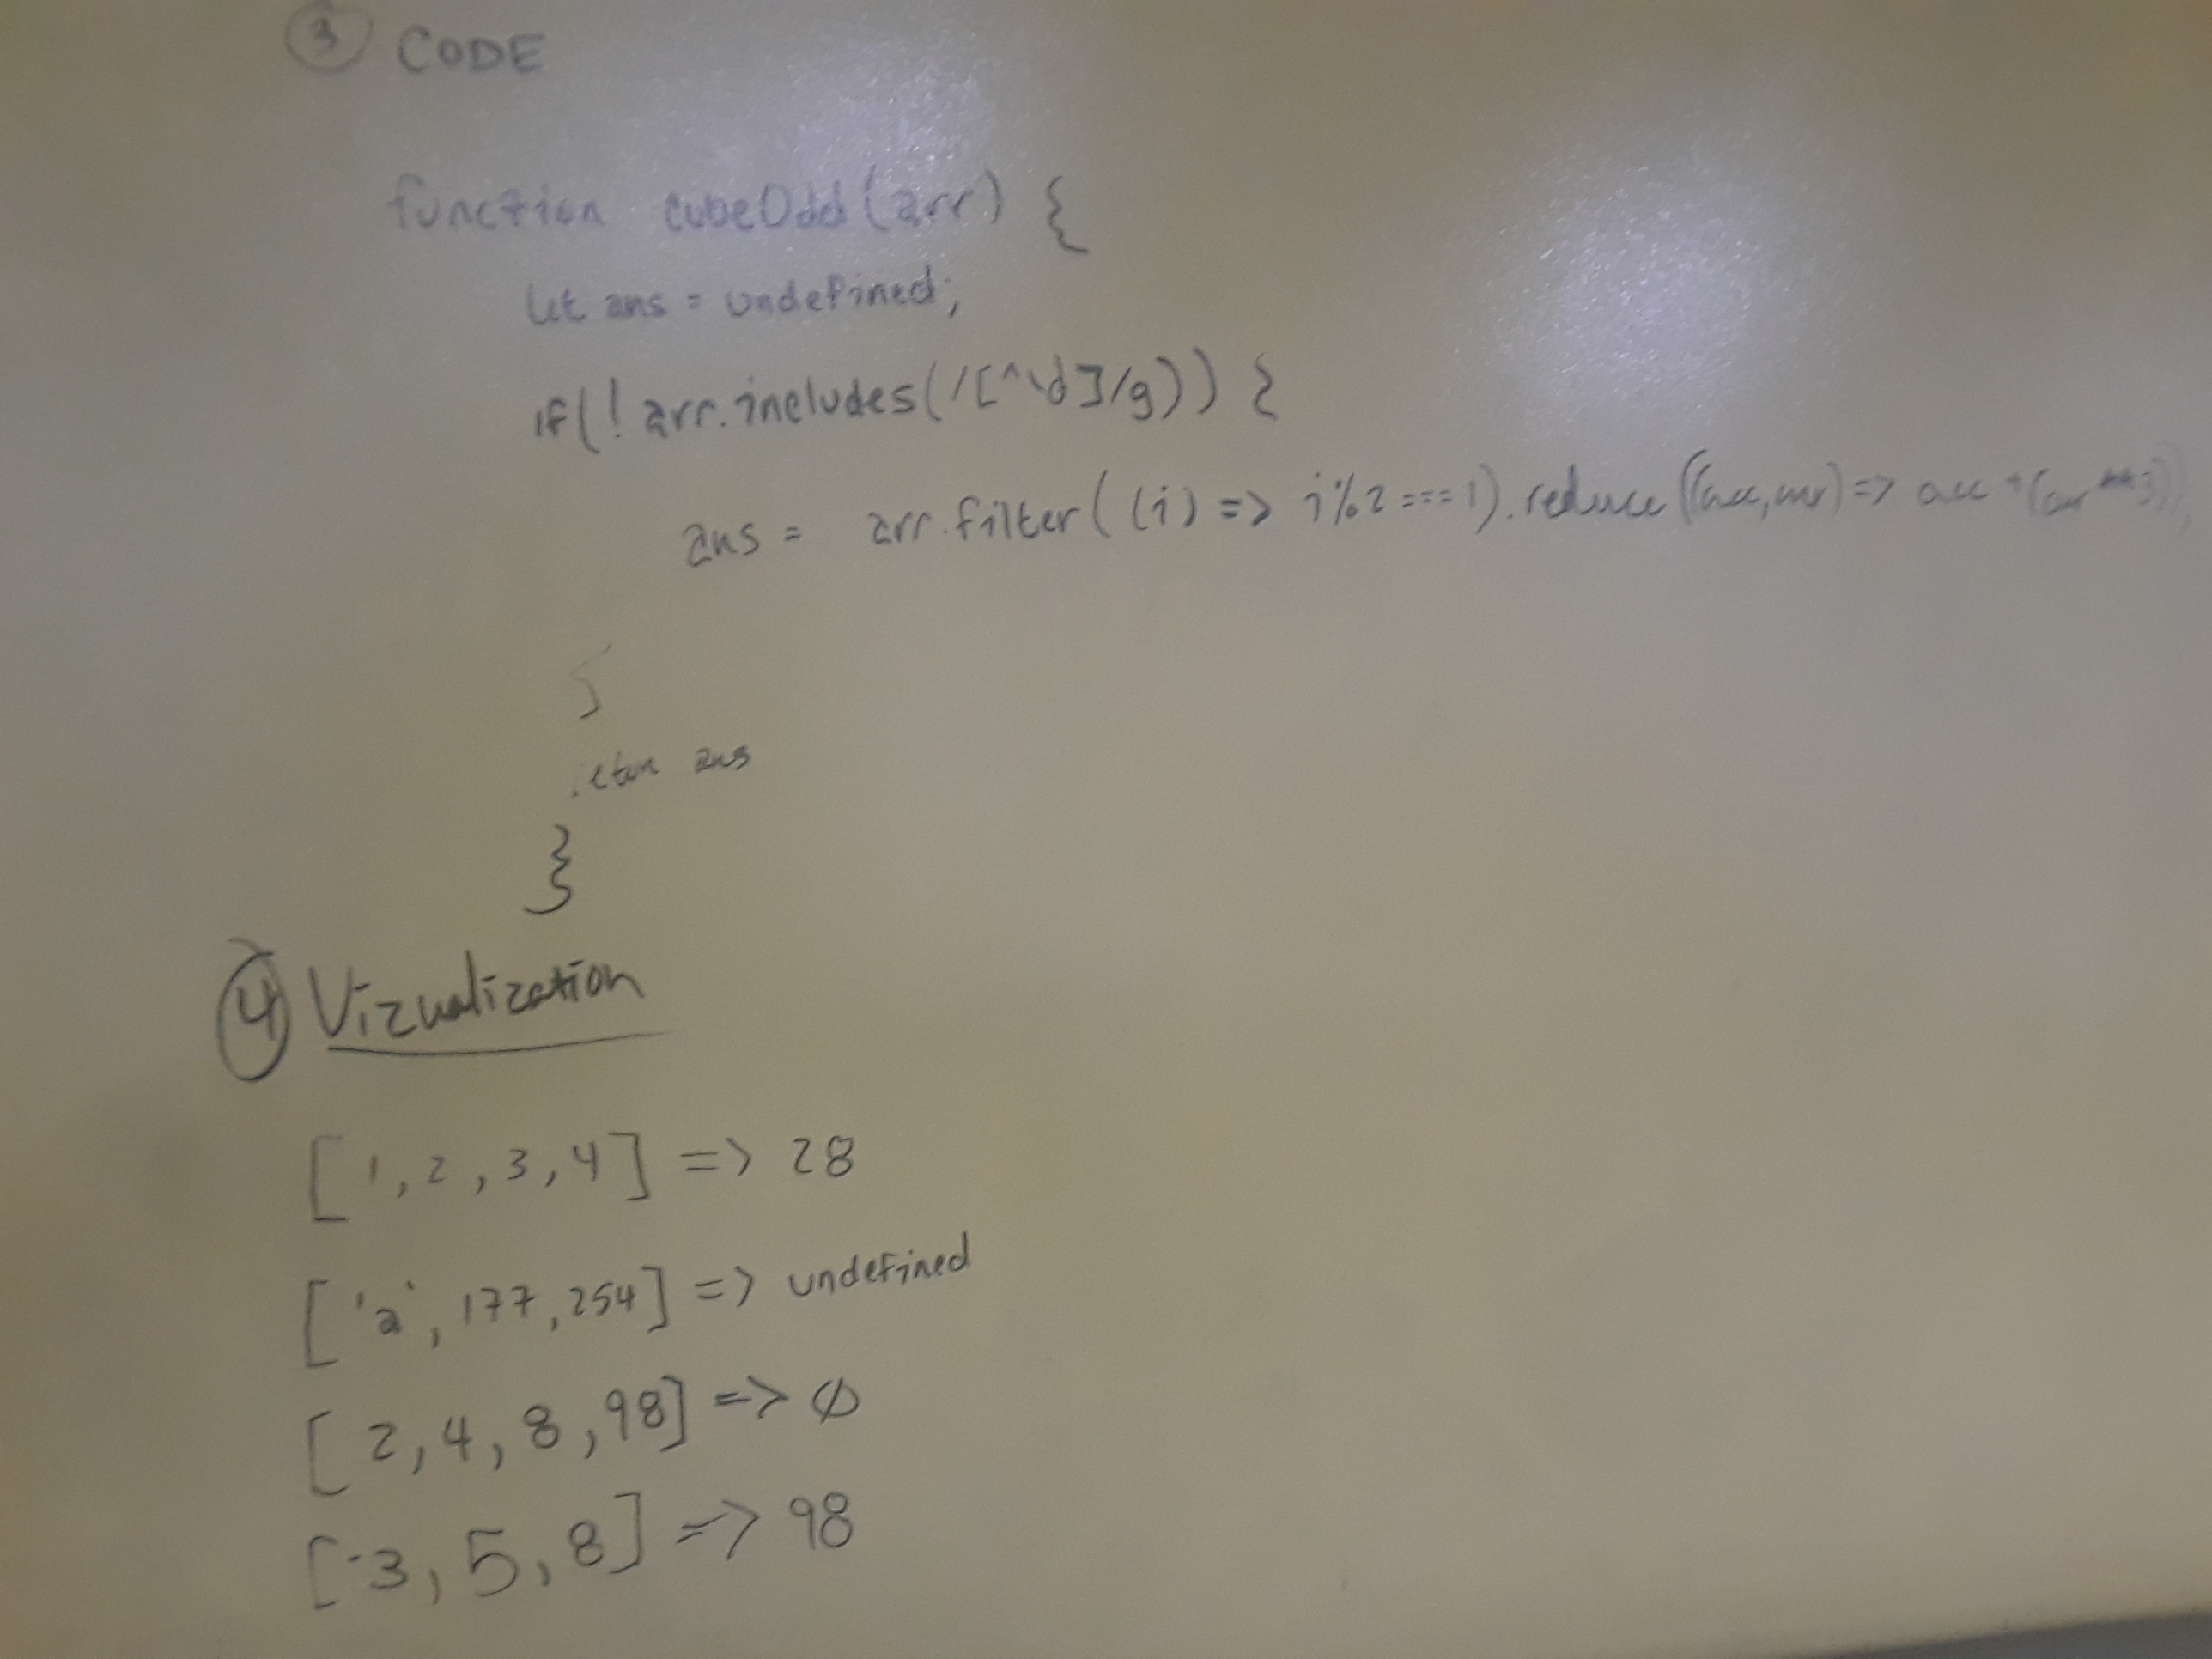 3 CODE
function cubeOdd(arr) {
let ans = undefined;
if(! arr.includes(/[^\d]/g)) {
ans = arr.filter( (i) => i%2 === 1).reduce((acc, cur) => acc + (cur ** 3))
}
return ans
}
4 Vizualization
[1, 2, 3, 4] => 28
['a', 177, 254] => undefined
[2, 4, 8, 98] => 0
[-3, 5, 8] => 98